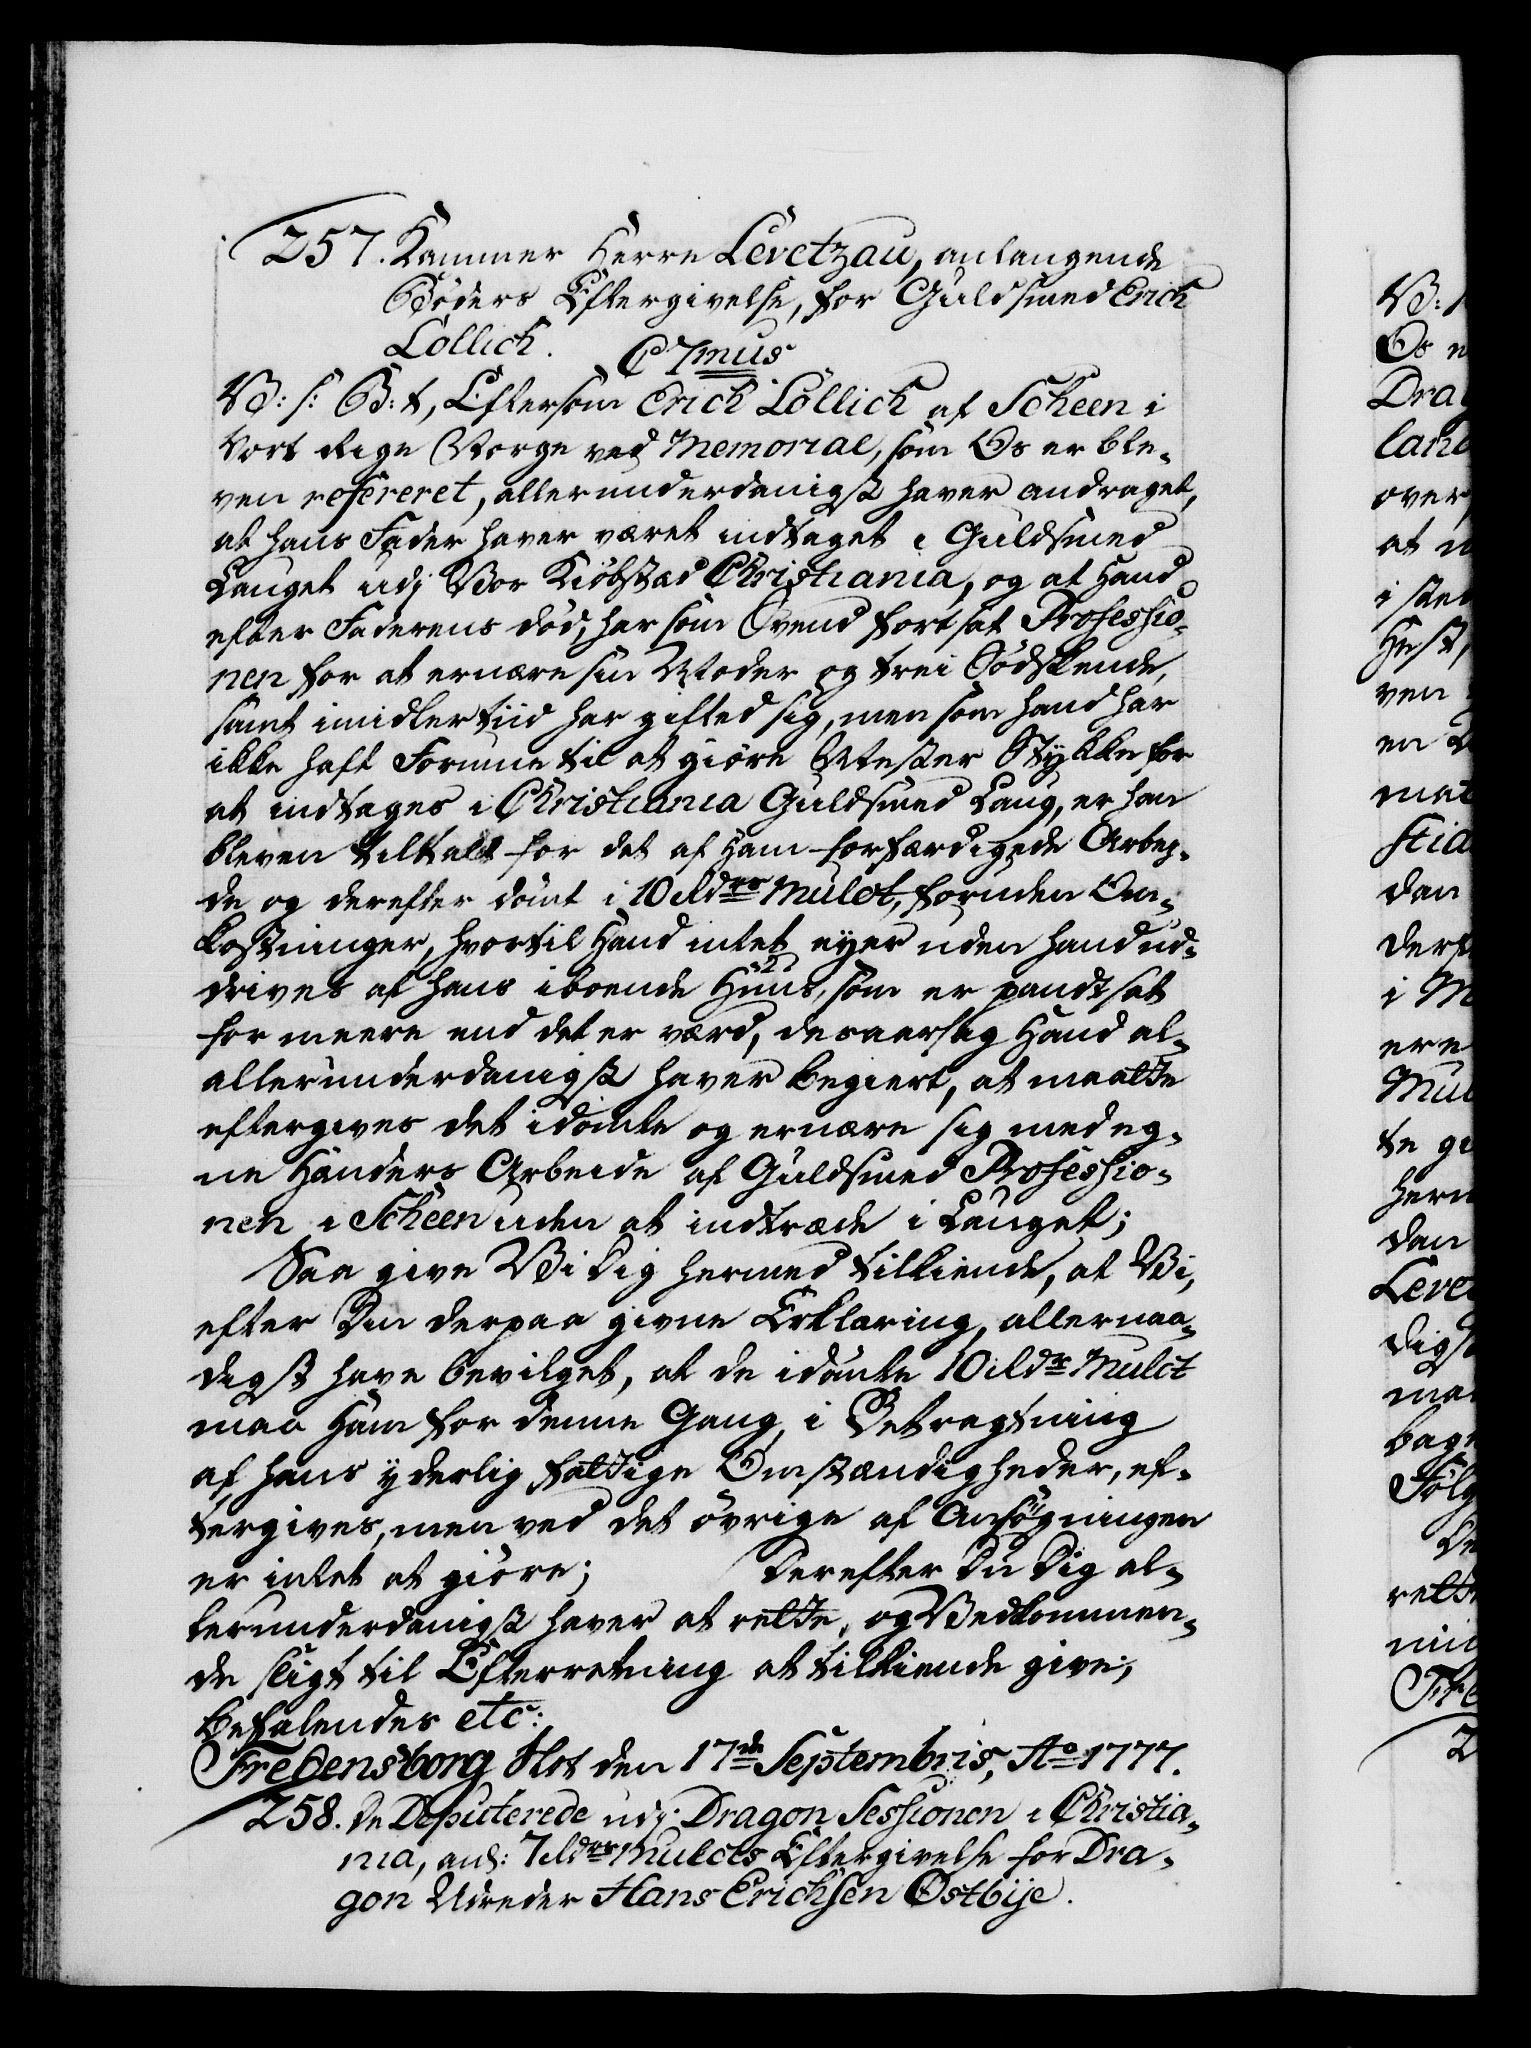 257. Kammer Herre Levetzau, anlangende
Böders Eftergivelse, for Guldsmed Erich
Löllich. C7mus
V: s: G: t, Eftersom Erich Löllich af Scheen i
Vort Rige Norge ved Memorial, som Os er ble-
ven refereret, allerunderdanigst haver andraget,
at hans Fader haver været indtaget i Guldsmed
Lauget udj Vor Kiöbstæd Christiania, og at Hand
efter Faderens död, har som Svend fortsat Professio-
nen for at ernære sin Moder og trei Södskende,
samt imidlertiid har gifted sig, men som hand har
ikke haft Formue til at giöre Mester Stykke for
at indtages i Christiania Guldsmed Laug, er han
bleven tiltalt for det af Ham forfærdigede Arbey-
de og derefter dömt i 10 Rdrs Mulct, foruden Om-
kostninger, hvortil Hand intet eyer uden hand ud-
drives af hans iboende Huus, som er pandtsat
for meere end det er værd, desaarsag Hand al-
allerunderdanigst haver begiert, at maatte
eftergives det idömte og ernære sig med eg-
ne Hænders Arbeide af Guldsmed Professio-
nen i Scheen uden at indtræde i Lauget;
Saa give Vi Dig hermed tilkiende, at Vi,
efter Din derpaa givne Erklæring, allernaa-
digst have bevilget, at de idömte 10 Rdr Mulct
maa Ham for denne Gang, i Betragtning
af hans yderlig fattige Omstændigheder, ef-
tergives, men ved det övrige af Ansögningen
er intet at giöre; Derefter Du Dig al-
lerunderdanigst haver at rette, og Vedkommen-
de sligt til Efterretning at tilkiende give;
Befalendes etc:
Fredensborg Slot den 17de Septembris, Ao 1777.
258. De Deputerede udj Dragon Sessionen i Christia-
nia, anl: 7 Rdrs Mulcts Eftergivelse for Dra-
gon Udreder Hans Erichsen Östbije.